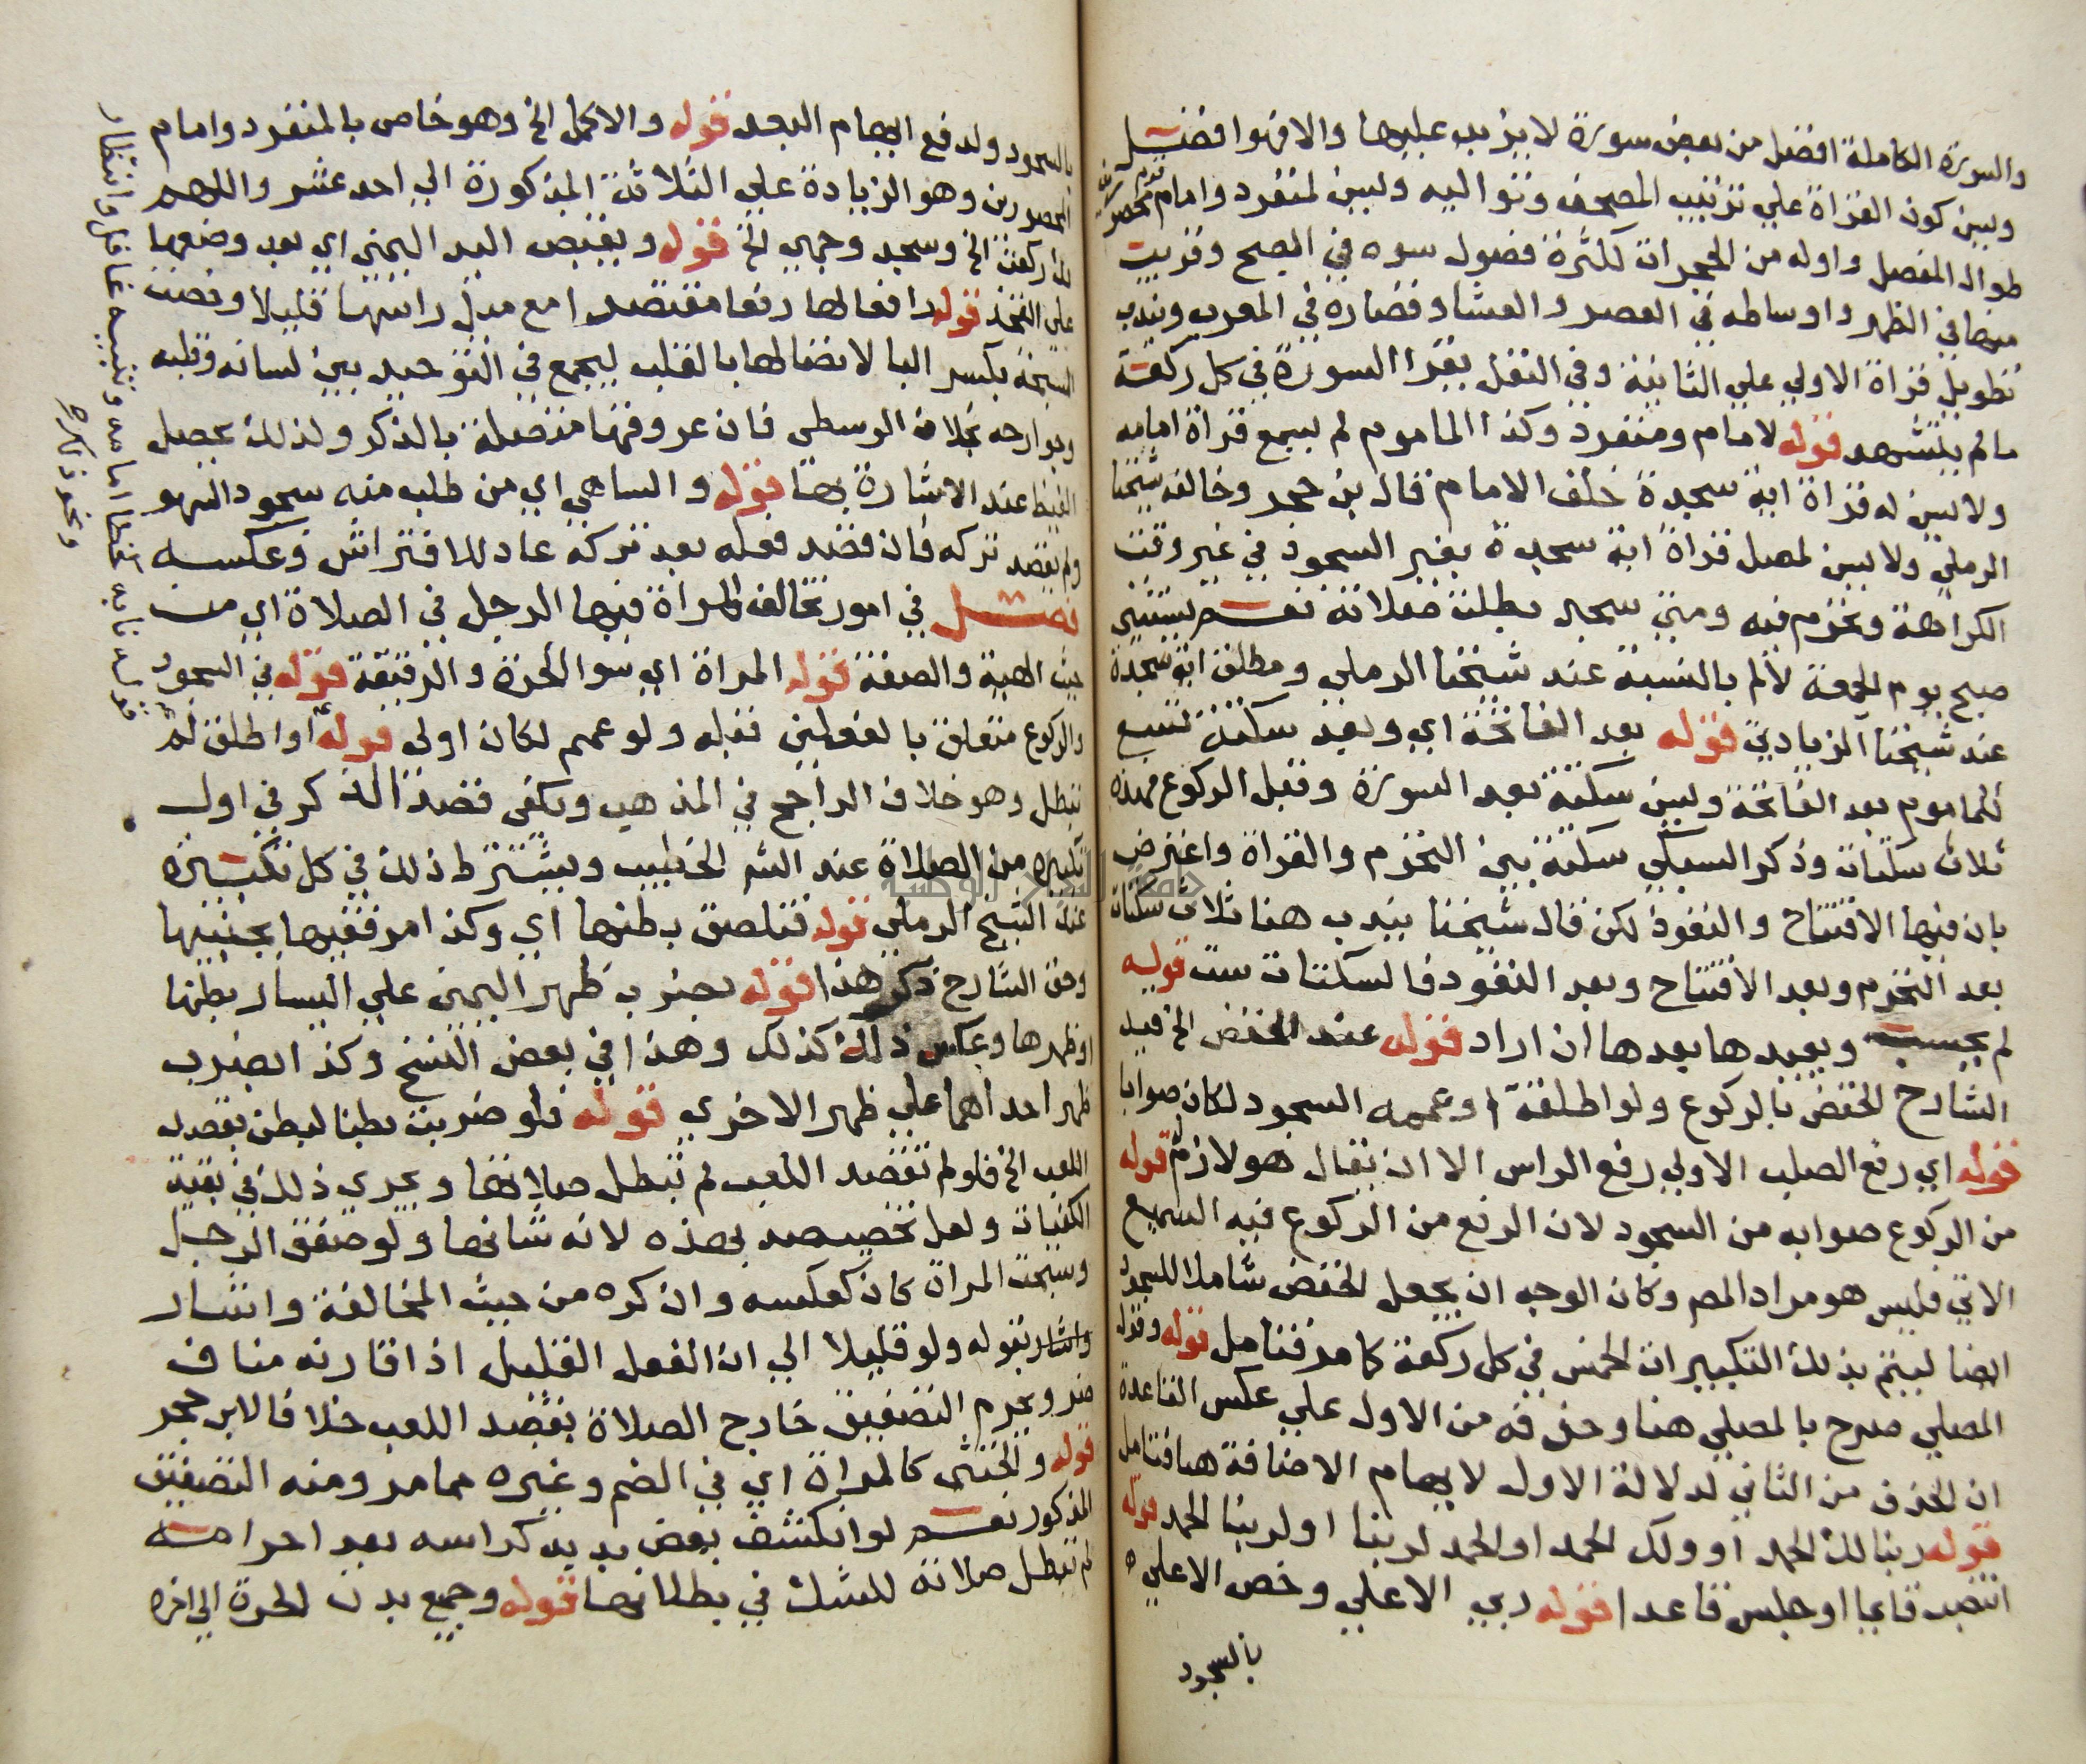 والسورة الكاملة افضل من بعض سورة لا يزيد عليها والا فهوا فضل
ويسن كون القراة علي ترتيب المصحف وتواليه ويسن لمنفرد وامام محصورين
طوال المفصل واوله من الحجرات لكثرة فصول سوره في الصبح وقريب
منها في الظهر واوساطه في العصر والعشا وقصاره في المغرب ويندب
تطويل قراة الاولي علي الثانية وفي النفل يقرا السورة في كل ركعة
ما لم يتشهد قوله لامام ومنفرد وكذا الماموم لم يسمع قراة امامه
ولا يسن له قراة اية سجدة خلف الامام قال بن حجر وخالفه شيخنا
الرملي ولا يسن لمصل قراة اية سجدة بغير السجود في غير وقت
الكراهة ويحرم فيه ومتي سجد بطلت صلاته نعم يستثني
صبح يوم الجمعة لالم بالنسبة عند شيخنا الرملي ومطلق اية سجدة
عند شيخنا الزيادي قوله بعد الفاتحة اي وبعد سكتة تسع
للماموم بعد الفاتحة ويسن سكتة بعد السورة وقبل الركوع فهذه
ثلاث سكتات وذكر السبكي سكتة بين التحرم والقراة واعترض
بان فيها الافتتاح والتعوذ لكن قال شيخنا يندب هنا ثلاث سكتات
بعد التحرم وبعد الافتتاح وبعد التعوذ فالسكتات ست قوله
لم يحسب ويعيدها بعدها ان اراد قوله عند الخفض الخ قيد
الشارح الخفض بالركوع ولو اطلقه او عممه السجود لكان صوابا
قوله اي رفع الصلب الاولي رفع الراس الا ان يقال هو لازم قوله
من الركوع صوابه من السجود لان الرفع من الركوع فيه السميع
الاتي فليس هو مراد المص وكان الوجه ان يجعل الخفض شاملا للسجود
ايضا ليتم بذلك التكبيرات الخمس في كل ركعة كامر فتامل قوله وقول
المصلي صرح بالمصلي هنا وحذفه من الاول علي عكس القاعدة
ان الحذف من الثاني لدلالة الاول لا يهام الاضافة هنا فتامل
قوله ربنا لك الحمد او ولك الحمد او الحمد لربنا او لربنا الحمد قوله
انتصب قايما او جلس قاعدا قوله ربي الاعلي وخص الاعلي
بالسجود
بالسجود ولدفع ايهام البعد قوله والاكمل الخ وهو خاص بالمنفرد وامام
المحصورين وهو الزيادة علي الثلاثة المذكورة الي احد عشر واللهم
لك ركعت الخ وسجد وجهي الخ قوله ويقبض اليد اليمني اي بعد وضعها
علي الفخذ قوله رافعا لها رفعا مقتصدا مع ميل راسها قليلا وخصت
السبحة بكسر البا لاتصالها بالقلب ليجمع في التوحيد بين لسانه وقلبه
وجوارحه بخلاف الوسطي فان عروقها متصلة بالذكر ولذلك يحصل
الغيظ عند الاشارة بها قوله والساهي اي من طلب منه سجود السهو
ولم يقصد تركه فان قصد فعله بعد تركه عاد للافتراش وعكسه
فصل في امور تخالف المراة فيها الرجل في الصلاة اي من
حيث الهيية والصفة قوله المراة اي سوا الحرة والرقيقة قوله في السجود
والركوع متعلق بالفعلين قبله ولو عمم لكان اولي قوله او اطلق لم
تبطل وهو خلاف الراجح في المذهب ويكفي قصد الذكر في اول
تكبيره من الصلاة عند الشم الخطيب ويشترط ذلك في كل تكبيرة
عند الشيخ الرملي قوله فتلصق بطنها اي وكذا مرفقيها بجنبيها
وحق الشارح ذكر هذا قوله بضرب ظهر اليمني علي اليسار بطنها
او ظهرها وعكس ذلك كذلك وهذا في بعض النسخ وكذا بضرب
ظهر احداهما علي ظهر الاخري قوله فلو ضربت بطنا لبطن بقصد
اللعب الخ فلو لم تقصد اللعب لم تبطل صلاتها ويجري ذلك في بقية
الكفيات ولعل تخصيصه بهذه لانه شانها ولو صفق الرجل
وسبحت المراة كان كعكسه وان كره من حيث المخالفة واشار
واشار بقوله ولو قليلا الي ان الفعل القليل اذا قارنه مناف
ضر ويحرم التصفيق خارج الصلاة بقصد اللعب خلافا لابن حجر
قوله والخنثي كالمراة اي في الضم وغيره مما مر ومنه التصفيق
المذكور نعم لو انكشف بعض بدنه كراسه بعد احرامه
لم تبطل صلاته للشك في بطلانها قوله وجميع بدن الحرة الي اخره
امامه وتنبيه غافل وانتظار
ونحو ذلك